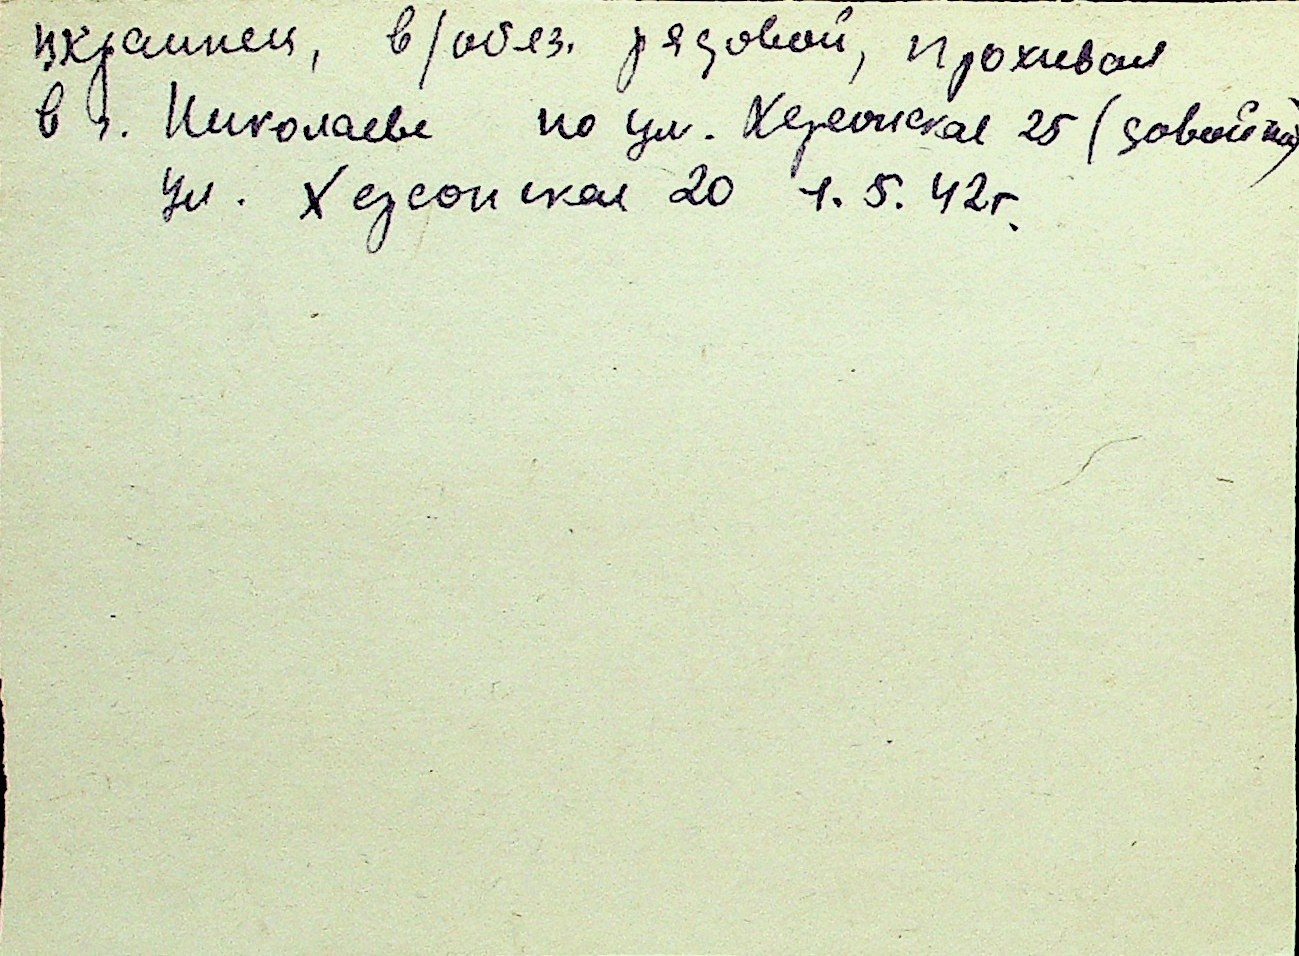 украинец, в/обяз. рядовой, проживал
в г. Николаеве по ул. Херсонская 25 (до войны)
ул. Херсонская 20 1.5.42г.